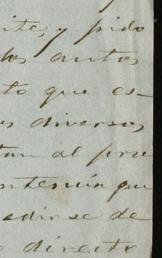 ite, y pido
los autos
to que es-
s diversos
tan al pre
ntencia que
edirse de
o directo